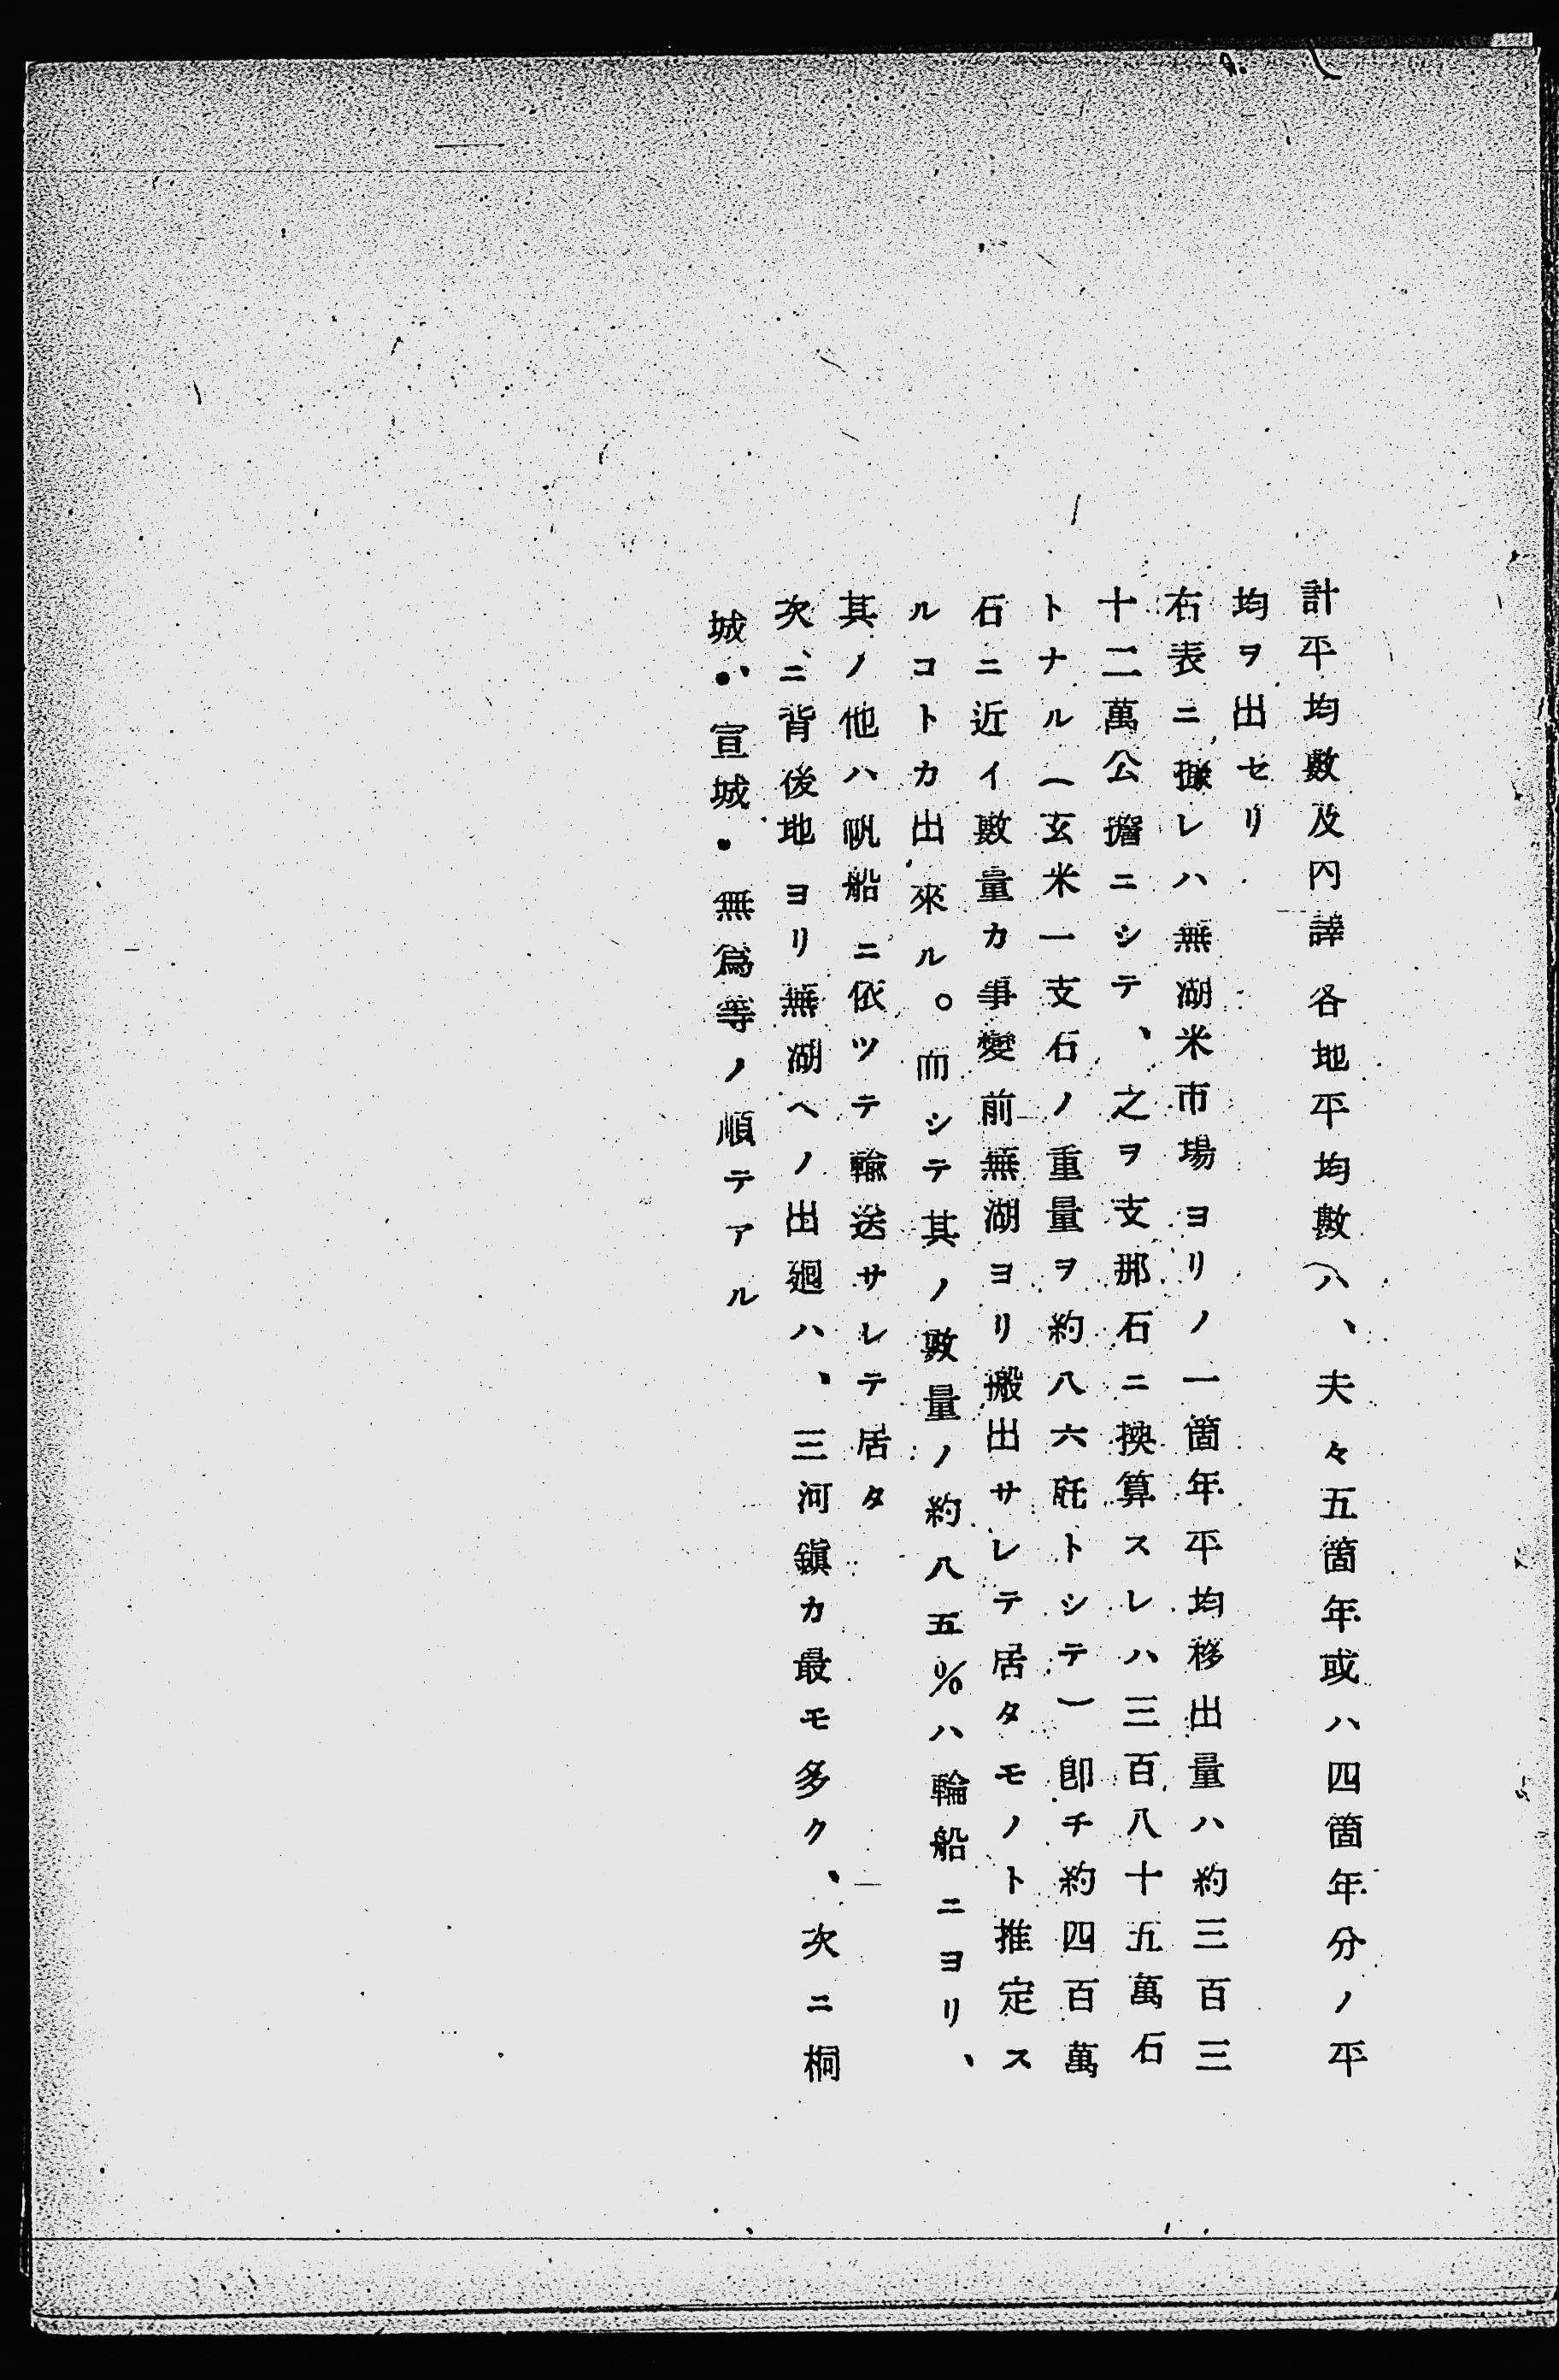 計平均數及內譯各地平均數ハ、夫々五箇年或ハ四箇年分ノ平
均ヲ出セリ
右表ニ據レハ無湖米市場ヨリノ一箇年平均移出量ハ約三百三
十二萬公擔ニシテ、之ヲ支那石ニ換算スレハ三百八十五萬石
トナル（玄米一支石ノ重量ヲ約八六瓩トシテ）卽チ約四百萬
石ニ近イ數量カ事變前無湖ヨリ搬出サレテ居タモノト推定ス
ルコトカ出來ル。而シテ其ノ數量ノ約八五％ハ輪船ニヨリ、
其ノ他ハ帆船ニ依ツテ輸送サレテ居タ
次ニ背後地ヨリ無湖ヘノ出廻ハ、三河鎭カ最モ多ク、次ニ桐
城・宣城・無爲等ノ順テアル